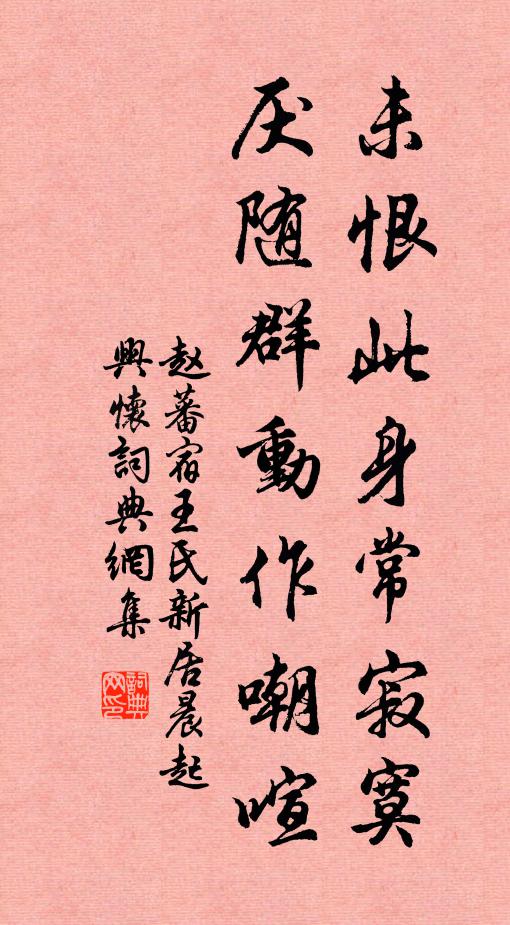 未恨此身常寂寞
厌随群動作嘲喧
赵蕃宿王氏新居晨起
興懷詞典網集
詞典
网印